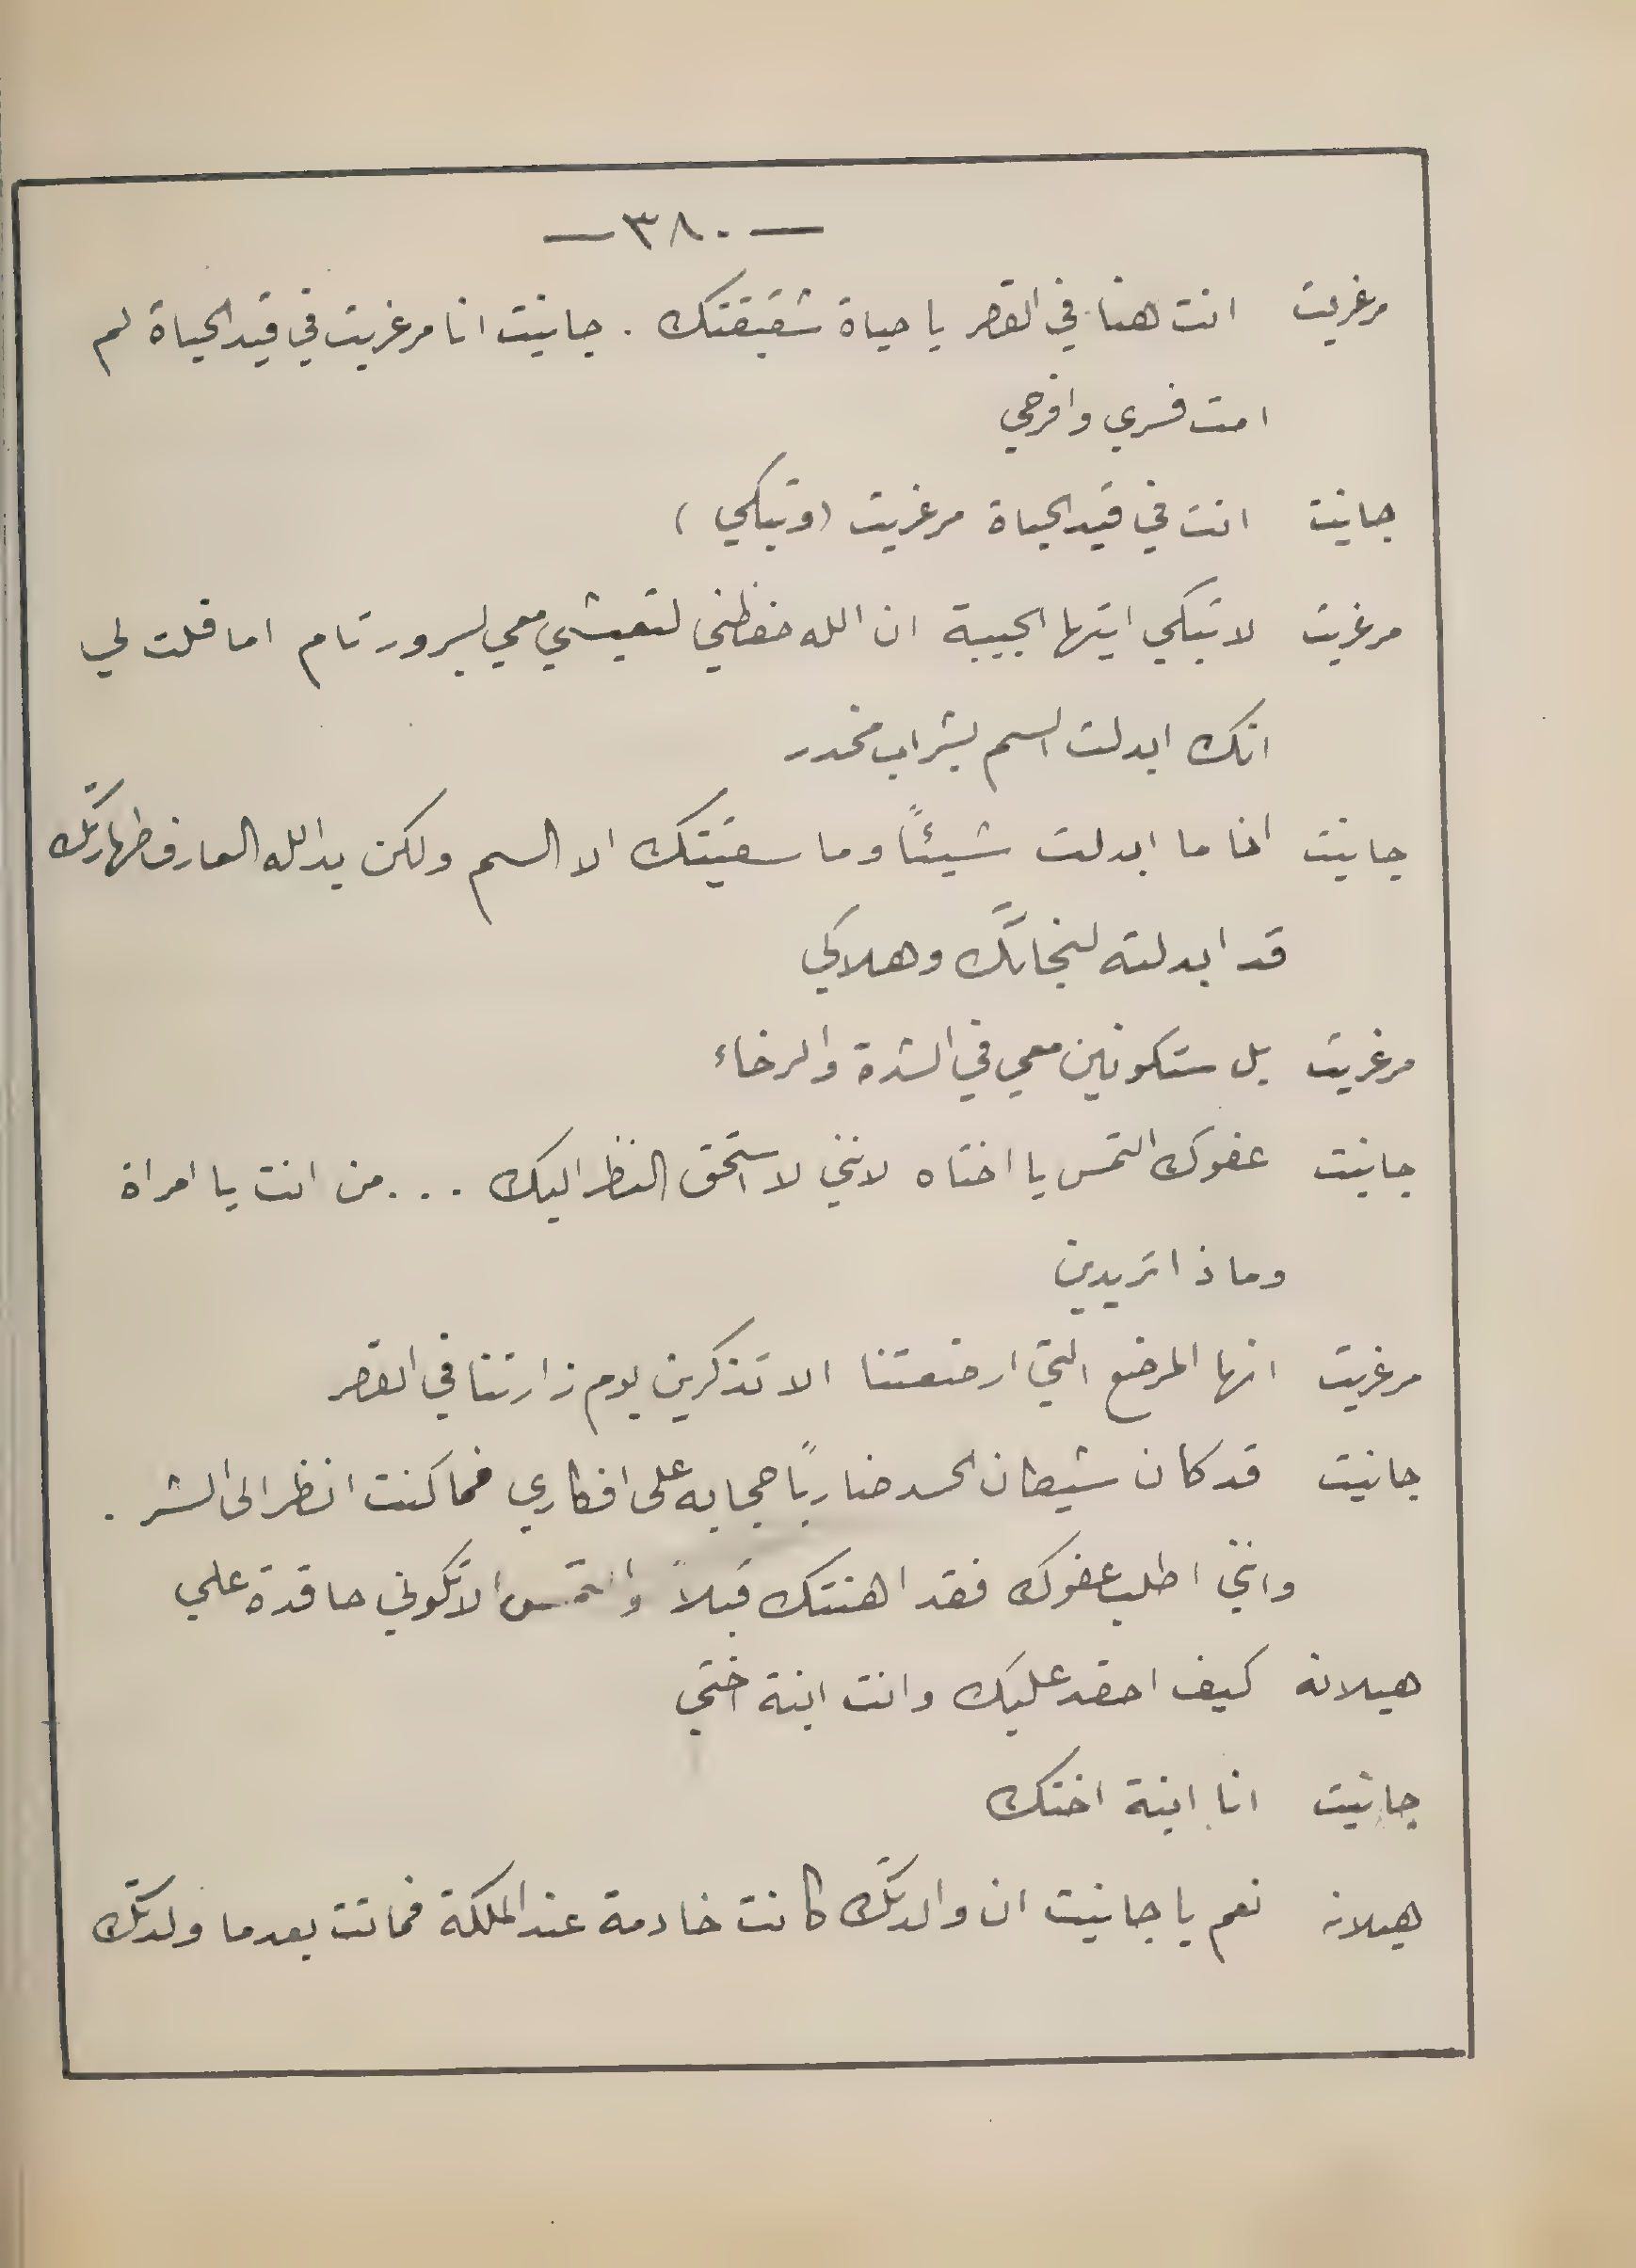 — ٣٨٠ —
مرغريت انت هنا في القصر يا حياة شقيقتك . جانيت انا مرغريت في قيد الحياة لم
امت فسري وافرحي
جانيت انت في قيد الحياة مرغريت (وتبكي)
مرغريت لا تبكي ايتها الحبيبة ان الله حفظني لتعيشي معي بسرور تام اما قلت لي
انك ابدلت السم بشراب مخدر
جانيت انا ما ابدلت شيئاً وما سقيتك الا السم ولكن يد الله العارف طهارتك
قد ابدلته لنجاتك وهلاكي
مرغريت بل ستكونين معي في الشدة والرخاء
جانيت عفوك التمس يا اختاه لانني لا استحق النظر اليك ... من انت يا امراة
وماذا تريدين
مرغريت انها المرضع التي ارضعتنا الا تذكرين يوم زارتنا في القصر
جانيت قد كان شيطان الحسد ضارباً حجابه على افكاري فما كنت انظر الى الشر .
وانني اطلب عفوك فقد اهنتك قبلاً والتمس الا تكوني حاقدة علي
هيلانة كيف احقد عليك وانت ابنة اختي
جانيت انا ابنة اختك
هيلانه نعم يا جانيت ان والدتك كانت خادمة عند الملكة فماتت بعدما ولدتك